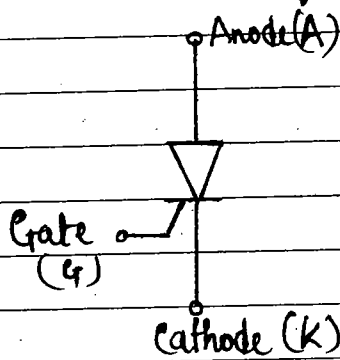 Anode(A)
Gate
(G)
Cathode (K)